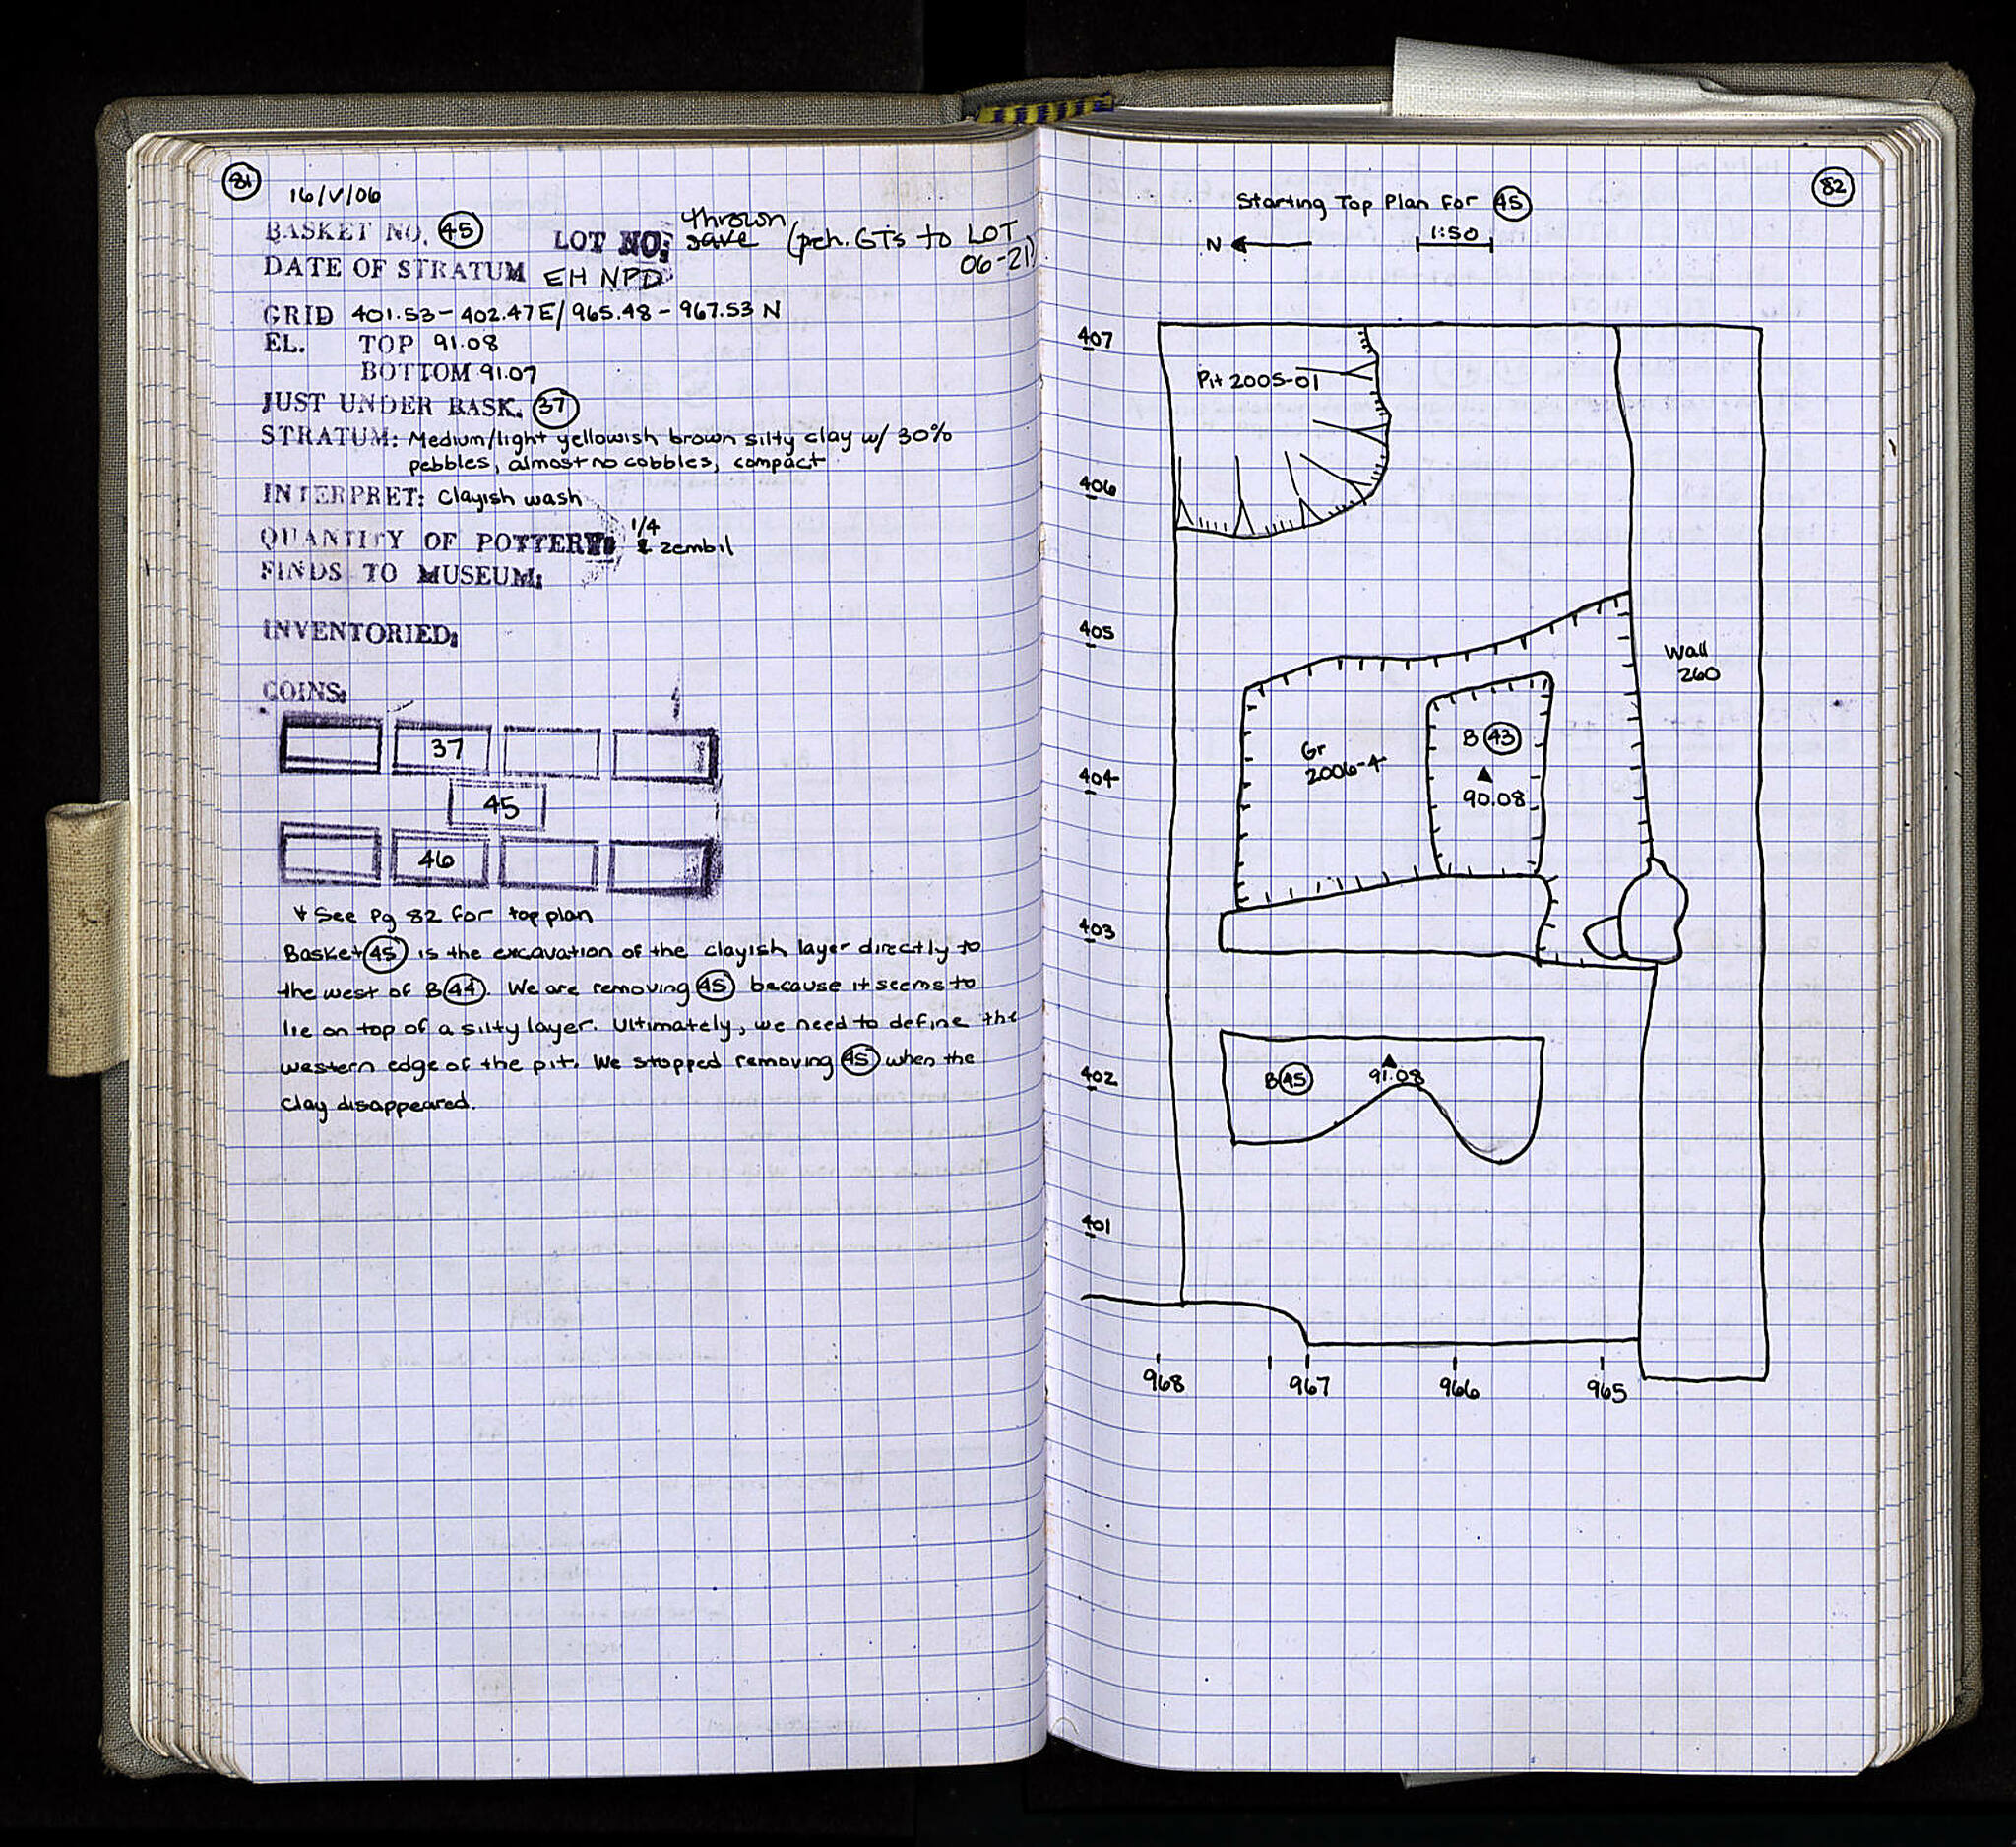 81
16/V/06
BASKET NO. 45 LOT NO: save thrown (pch. GTs to LOT 06-21)
DATE OF STRATUM EH NPD
GRID 401.53 - 402.47 E / 965.48 - 967.53 N
EL. TOP 91.08
BOTTOM 91.07
JUST UNDER BASK. 37
STRATUM: Medium/light yellowish brown silty clay w/ 30%
pebbles, almost no cobbles, compact
INTERPRET: Clayish wash
QUANTITY OF POTTERY: 1/4 zembil
FINDS TO MUSEUM:
INVENTORIED:
COINS:
37
45
46
* See pg 82 for top plan
Basket 45 is the excavation of the clayish layer directly to
the west of B 44. We are removing 45 because it seems to
lie on top of a silty layer. Ultimately, we need to define the
western edge of the pit. We stopped removing 45 when the
clay disappeared.
82
Starting Top Plan for 45
N 1:50
407
Pit 2005-01
406
405
Wall
260
B 43
Gr
2006-4
404
90.08
403
402
B 45 91.08
401
968 967 966 965